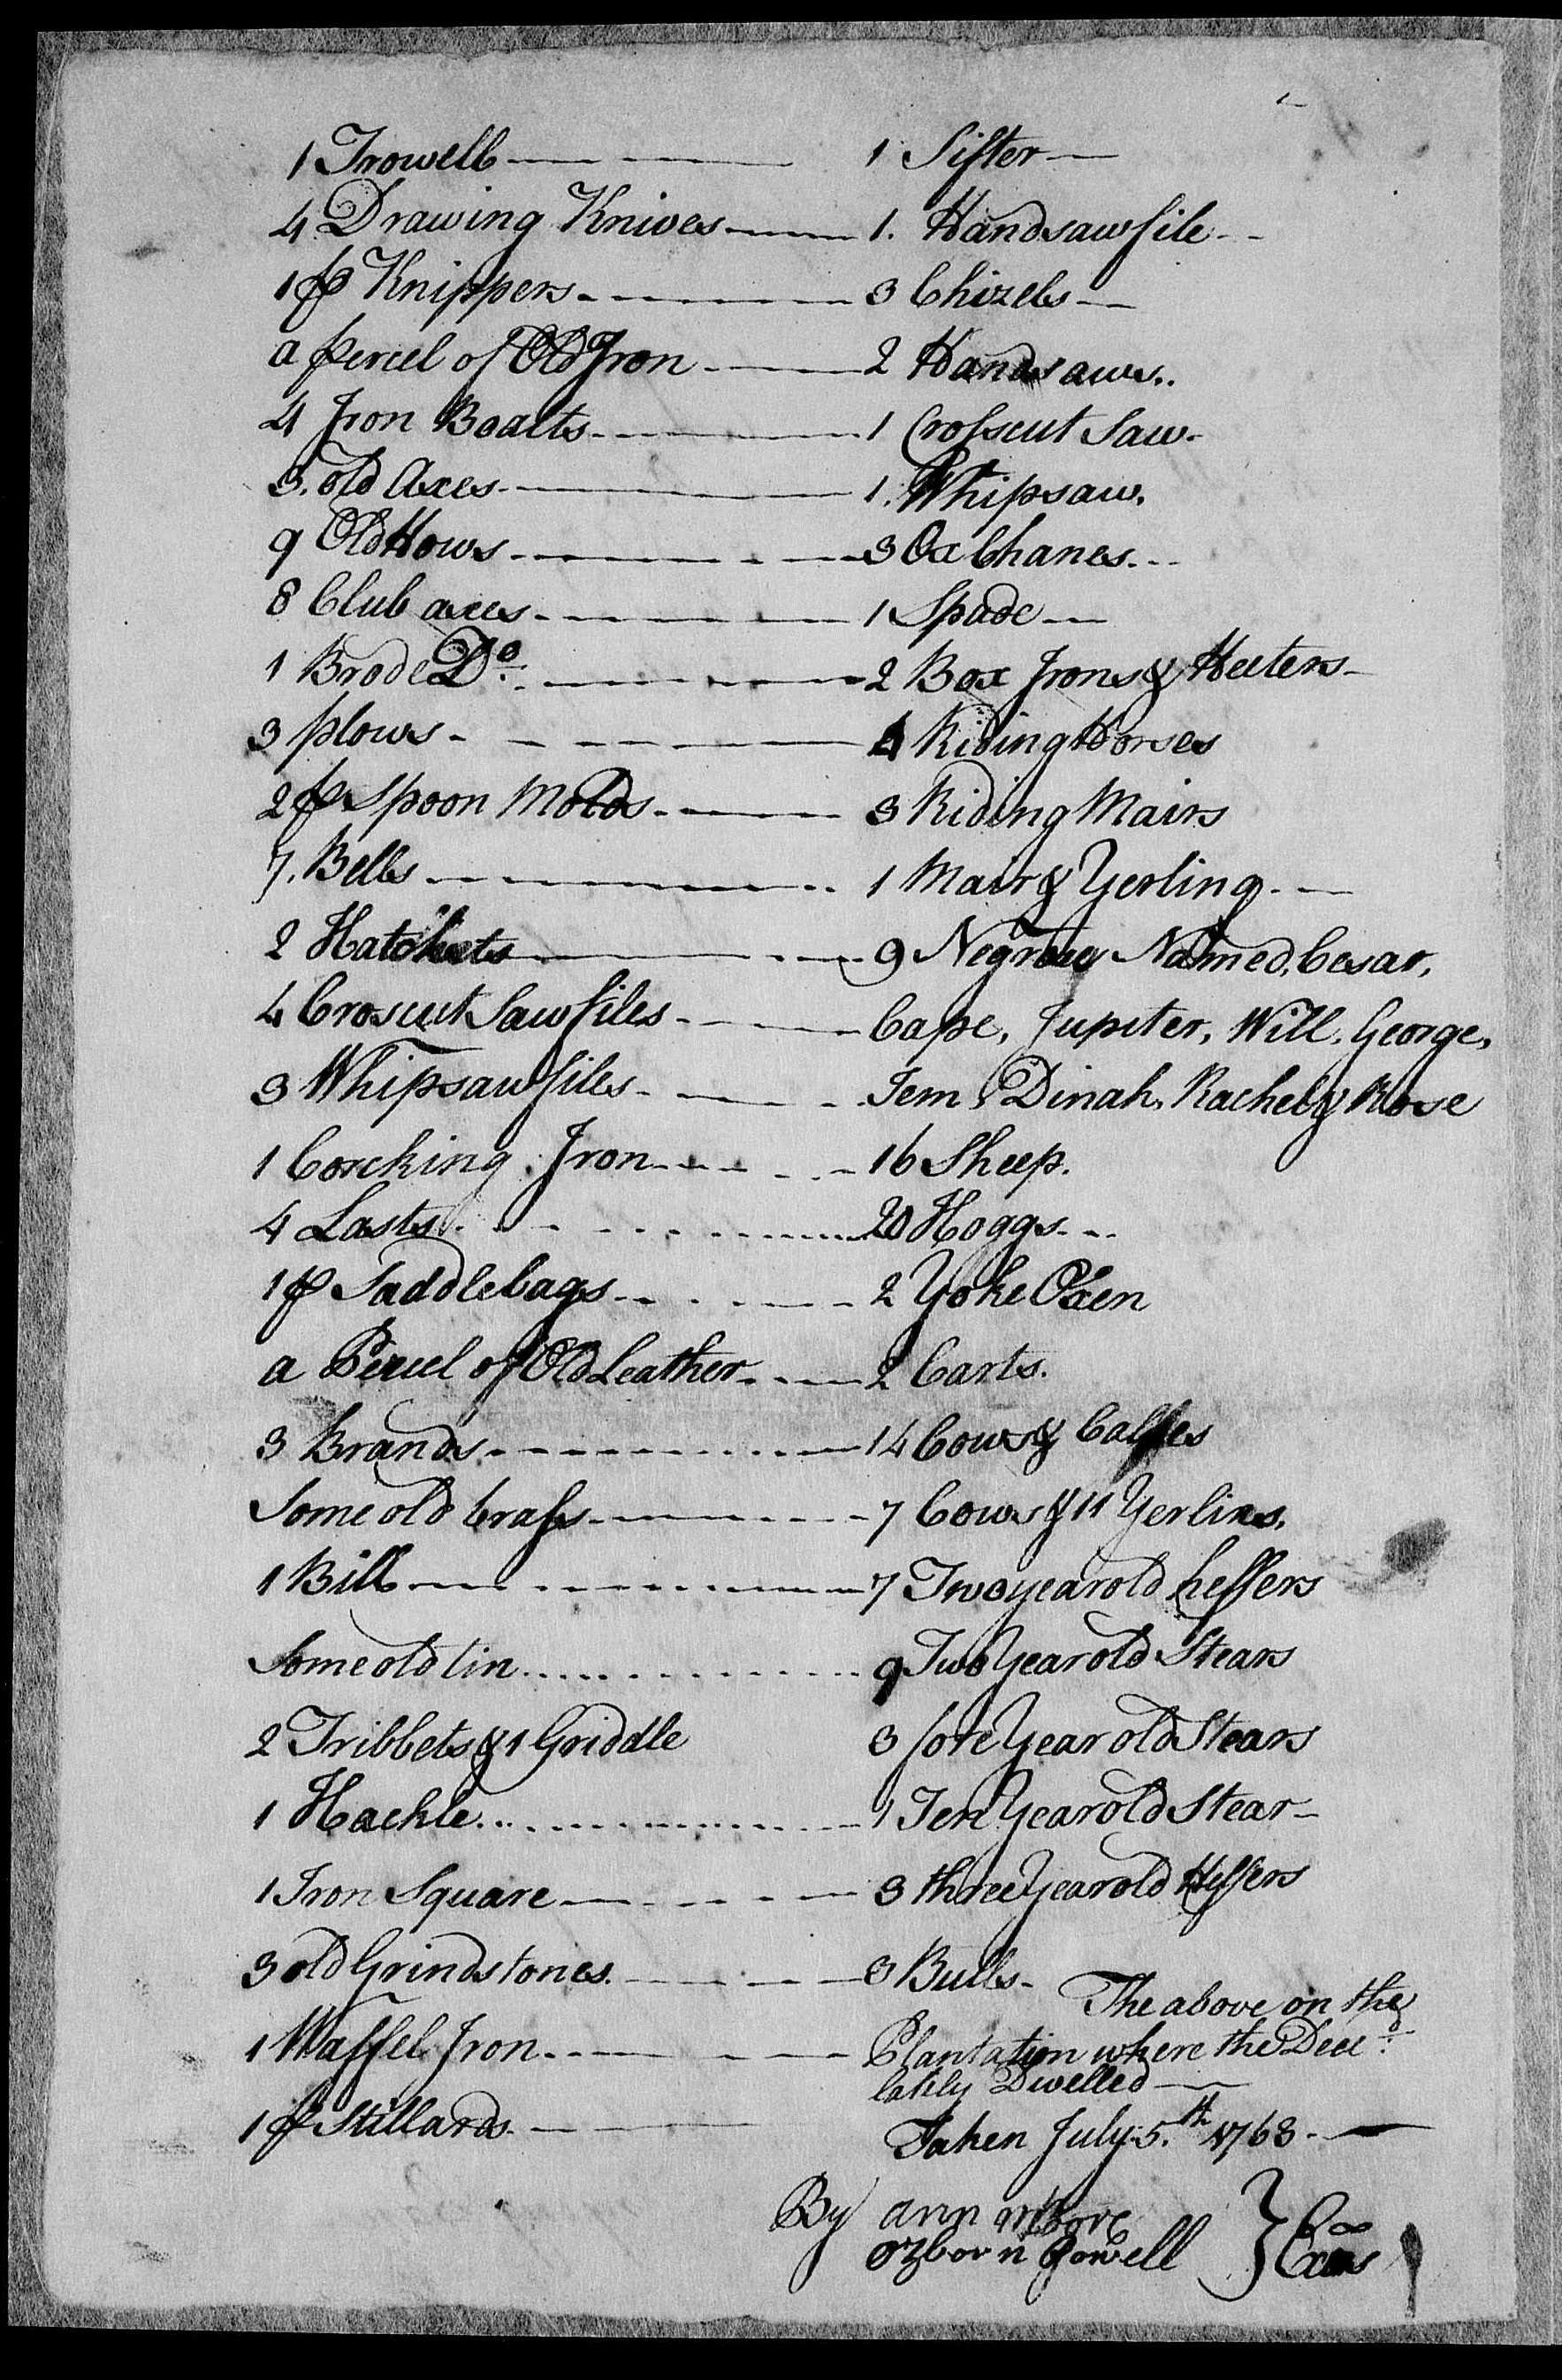 1 Trowell
4 Drawing Knives
1 p Knippers
a percel of Old Iron
4 Iron Boalts
3. old Axes
9 Old Hows
8 Club axes
1 Brode Do.
3 plows
2 p Spoon Molds
7. Bells
2 Hatchets
4 Croscut Saw files
3 Whipsaw files
1 Corcking Iron
4 Lasts
1 p Saddlebags
a Percel of Old Leather
3 Brands
Some old brass
1 Bill
Some old tin
2 Tribbets & 1 Griddle
1 Hackle
1 Iron Square
3 old Grindstones
1 Waffel Iron
1 p Stillards
1 Sifter
1. Handsaw file
3 Chizels
2 Handsaws
1 Crosscut Saw
1. Whipsaw.
3 Ox Chanes
1 Spade
2 Box Irons & Heeters
4 Riding Horses
3 Riding Mairs
1 Mair & Yerling
9 Negroes Named, Cesar,
Cape, Jupiter, Will, George,
Jem, Dinah, Rachel & Rose
16 Sheep.
20 Hoggs
2 Yoke Oxen
2 Carts.
14 Cows & Calfes
7 Cows & 11 Yerlins.
7 Two year old heffers
9 Two Year old Stears
3 fore Year old Stears
1 Ten Year old Stear
3 three Year old Heffers
3 Bulls
The above on the
Plantation where the Decd.
lately Dwelled
Taken July 5.th 1768
By ann moore
ozborn Jowell } Exors